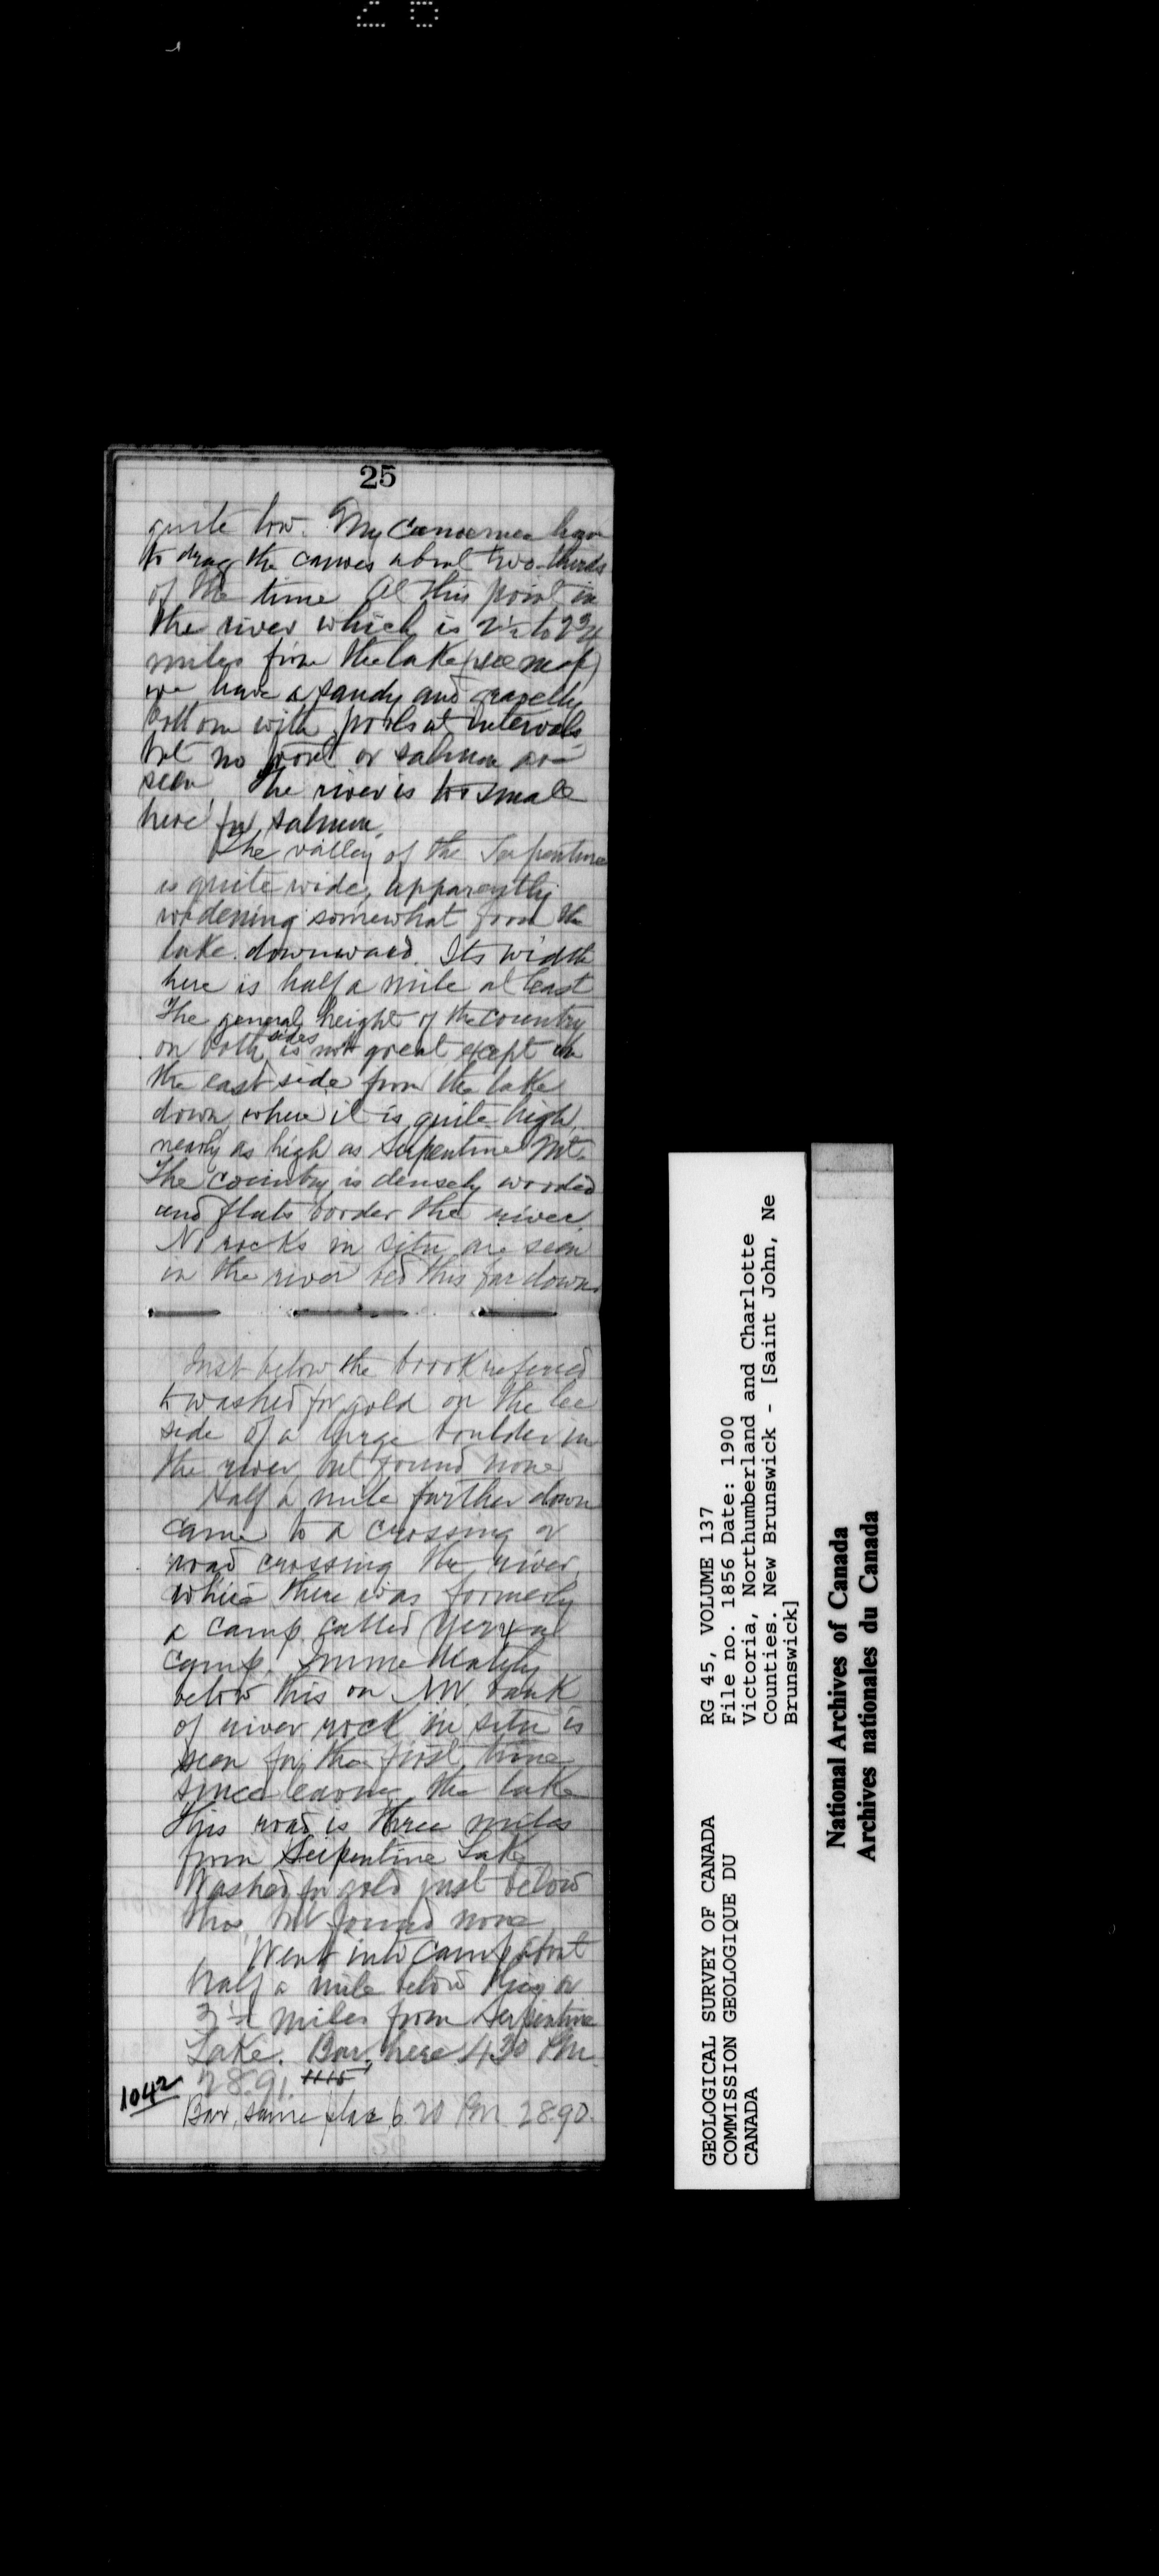 25
quite low. My canoemen have
to drag the canoes about two-thirds
of the time At this point in
the river which is 2½ to 2¾
miles from the lake (see map)
we have a sandy and gravelly
bottom with pools at intervals,
but no trout or salmon are
seen. The river is too small
here for salmon.
The valley of the Serpentine
is quite wide, apparently
widening somewhat from the
lake downward. Its width
here is half a mile at least
The general height of the country
on both sides is not great except on
the east side from the lake
down, where it is quite high,
nearly as high as Serpentine Mt.
The country is densely wooded
and flats border the river.
No rocks in situ are seen
in the river bed this far down.
Just below the brook referred
to washed for gold on the lee
side of a large boulder in
the river, but found none
Half a mile farther down
came to a crossing or
road crossing the river,
where there was formerly
a camp called
camp. Immediately
below this on NW. bank
of river rock in situ is
seen for the first time
since leaving the lake
This road is three miles
from Serpentine Lake
Washed for gold just below
this, but found none
Went into camp about
half a mile below this or
3½ miles from Serpentine
Lake. Bar. here 4.30 P.m.
28.91. 1115
1042
Bar. same place 6.20 P.m. 28.90.
GEOLOGICAL SURVEY OF CANADA
COMMISSION GEOLOGIQUE DU
CANADA
RG 45, VOLUME 137
File no. 1856 Date: 1900
Victoria, Northumberland and Charlotte
Counties. New Brunswick - [Saint John, Ne
Brunswick]
National Archives of Canada
Archives nationales du Canada